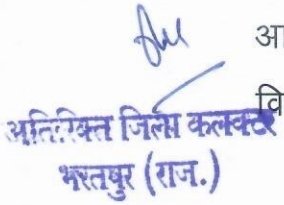 आ
वि
अतिरिक्त जिला कलक्टर
भरतपुर (राज.)